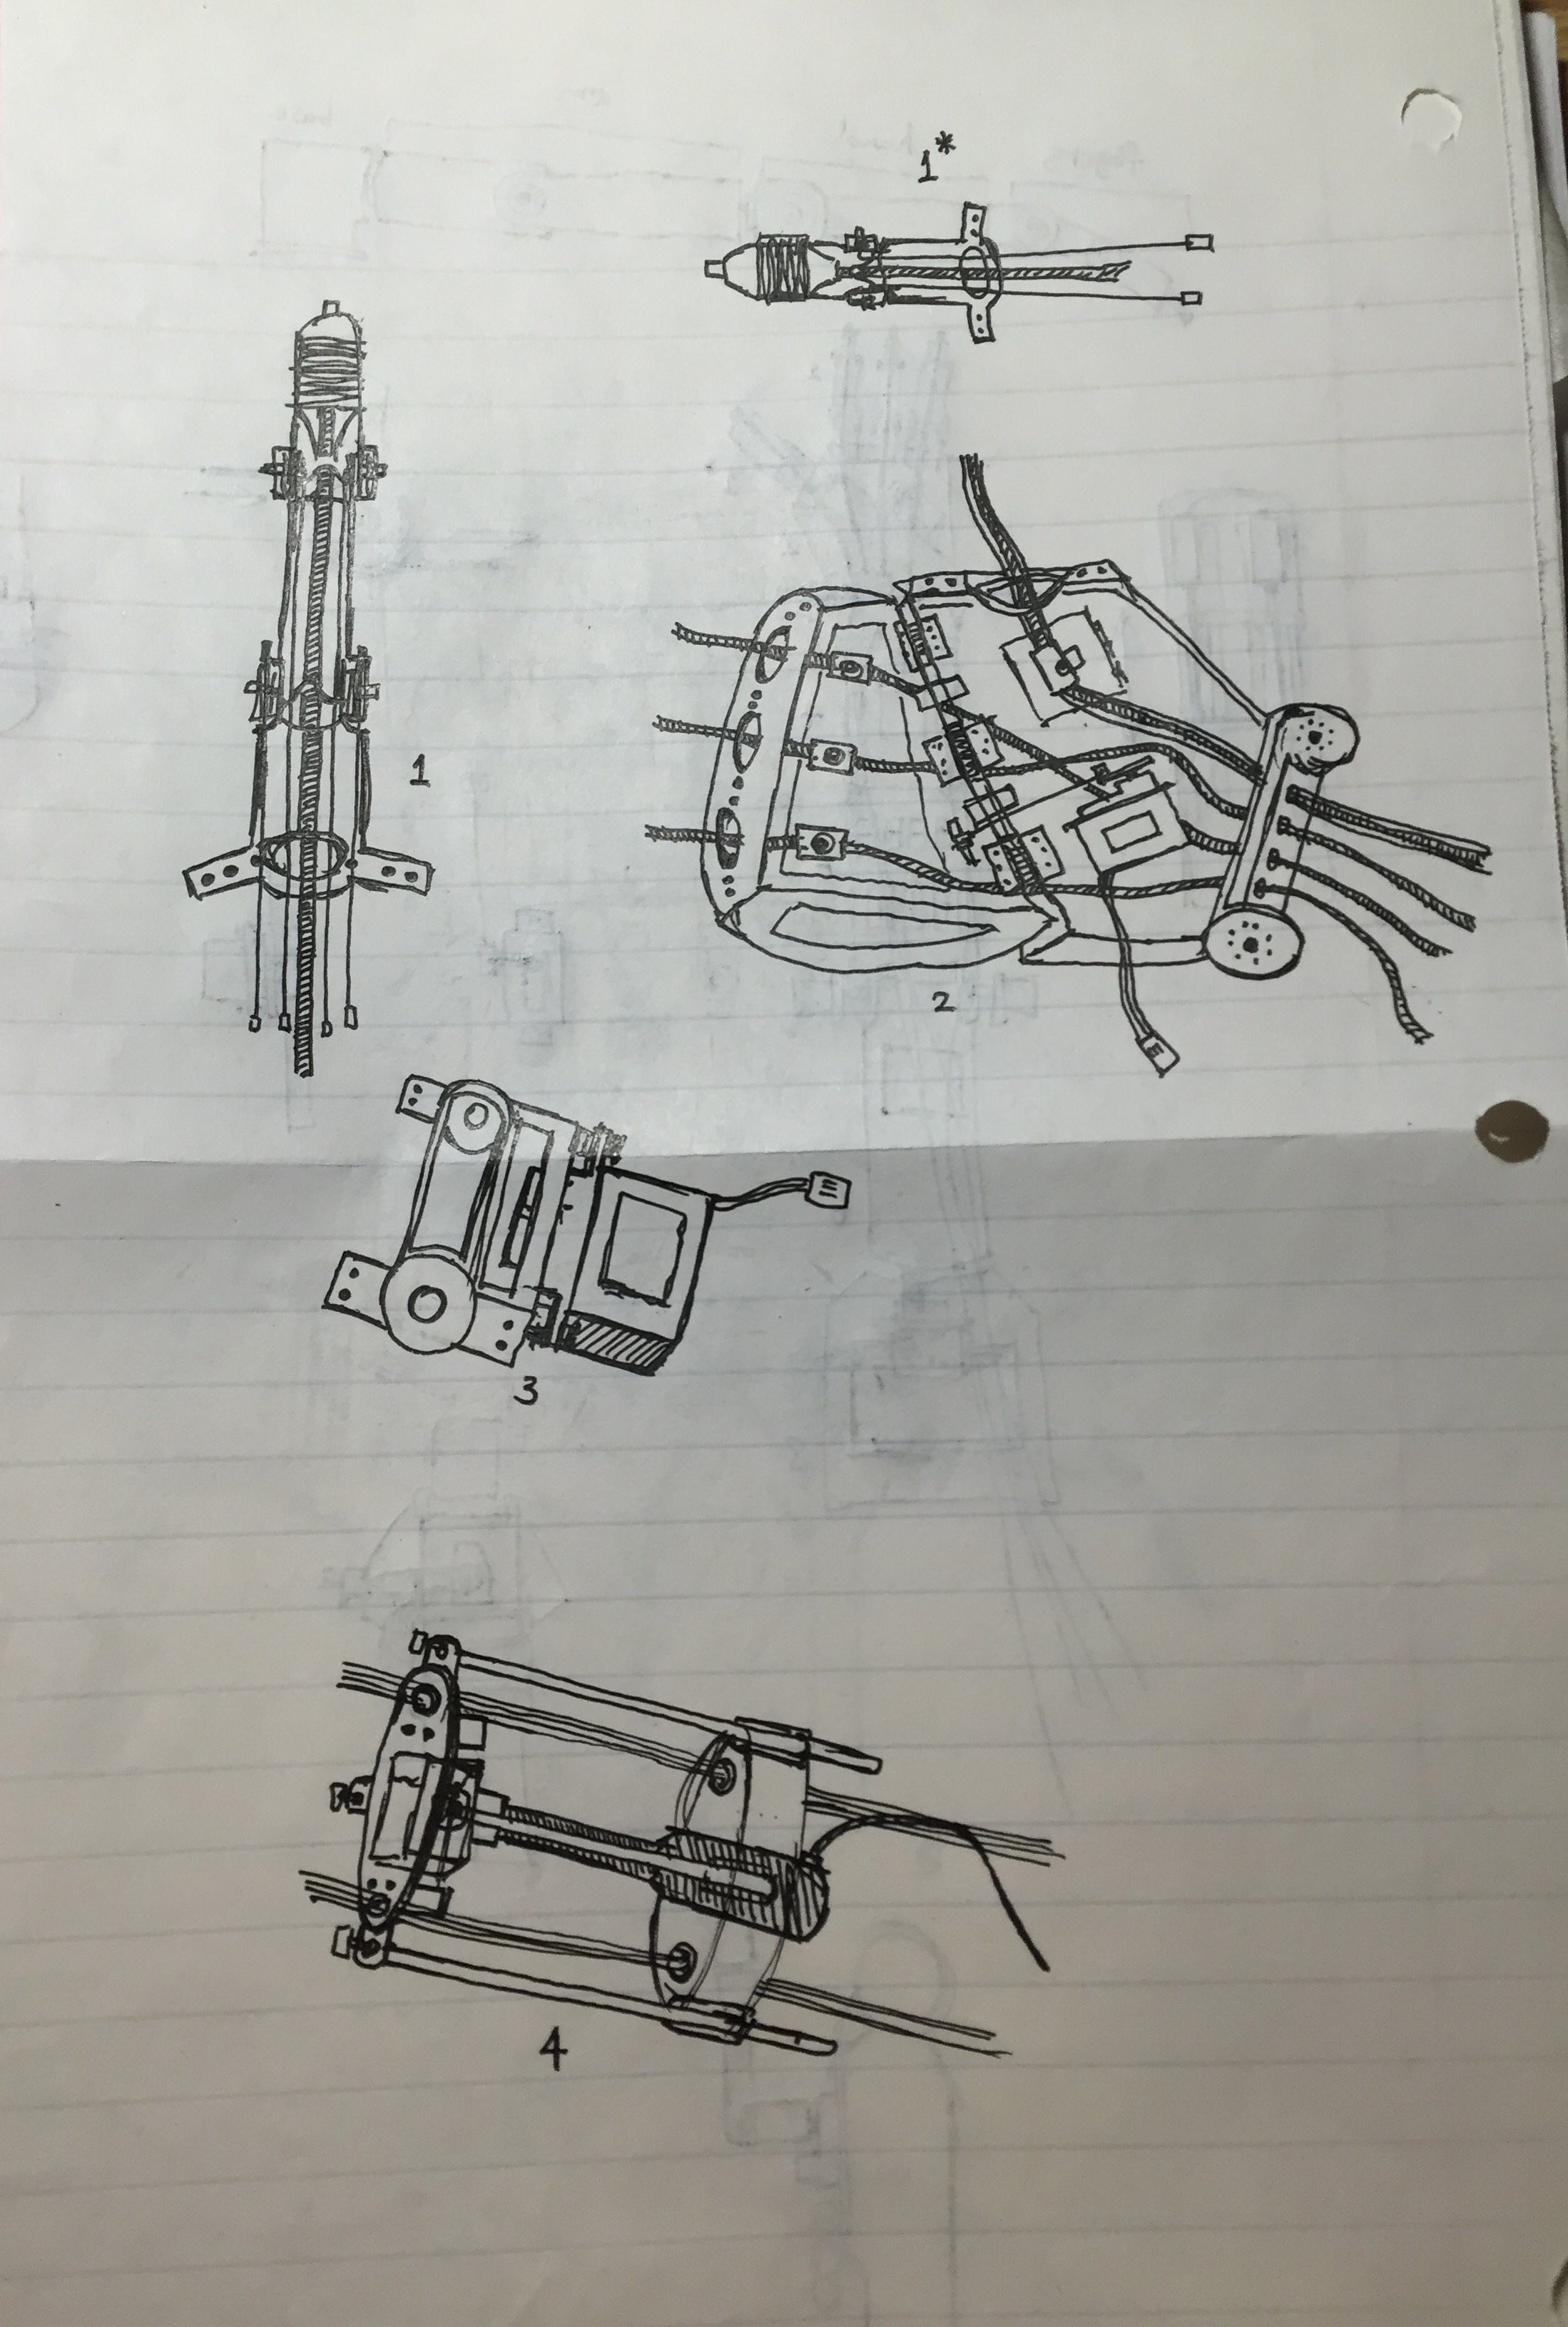 1*
1
2
3
4